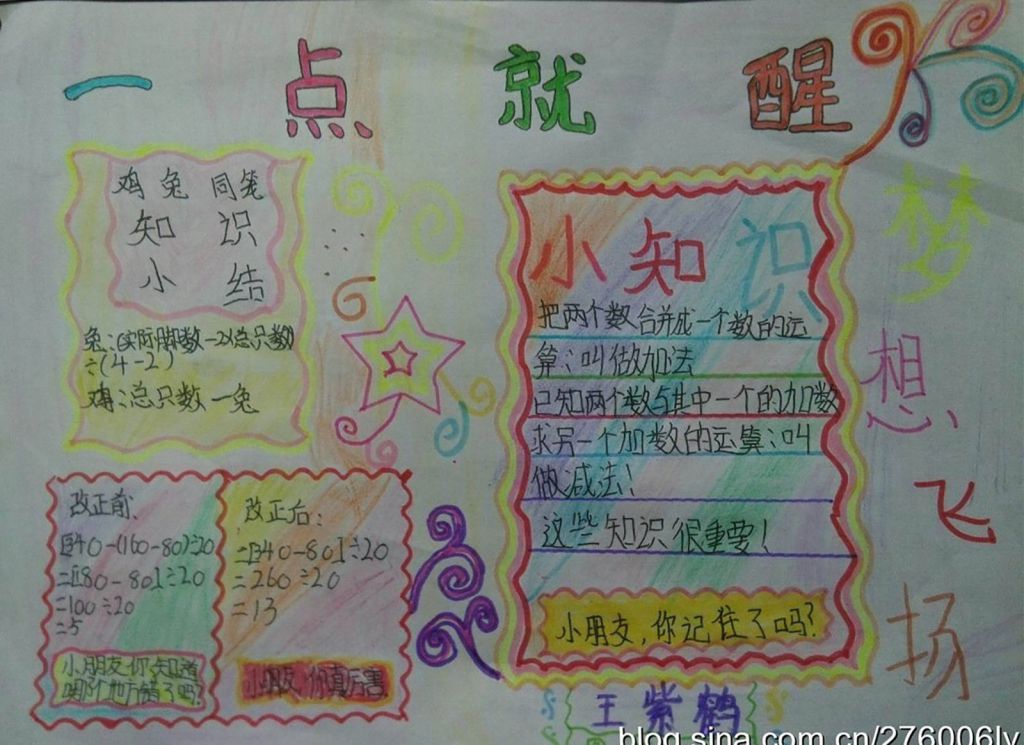 一点就醒
鸡兔同笼
知识
小结
兔:(实际脚数-2×总只数)
÷(4-2)
鸡:总只数-兔
改正前:
[340-(160-80)]÷20
=[180-80]÷20
=100÷20
=5
小朋友你知道
哪个地方错了吗?
改正后:
=[340-80]÷20
=260÷20
=13
小朋友,你真厉害
小知识
把两个数合并成一个数的运
算;叫做加法
已知两个数与其中一个的加数
求另一个加数的运算;叫
做减法!
这些知识很重要!
小朋友,你记住了吗?
梦
想
飞
扬
王紫鹤
blog.sina.com.cn/276006ly